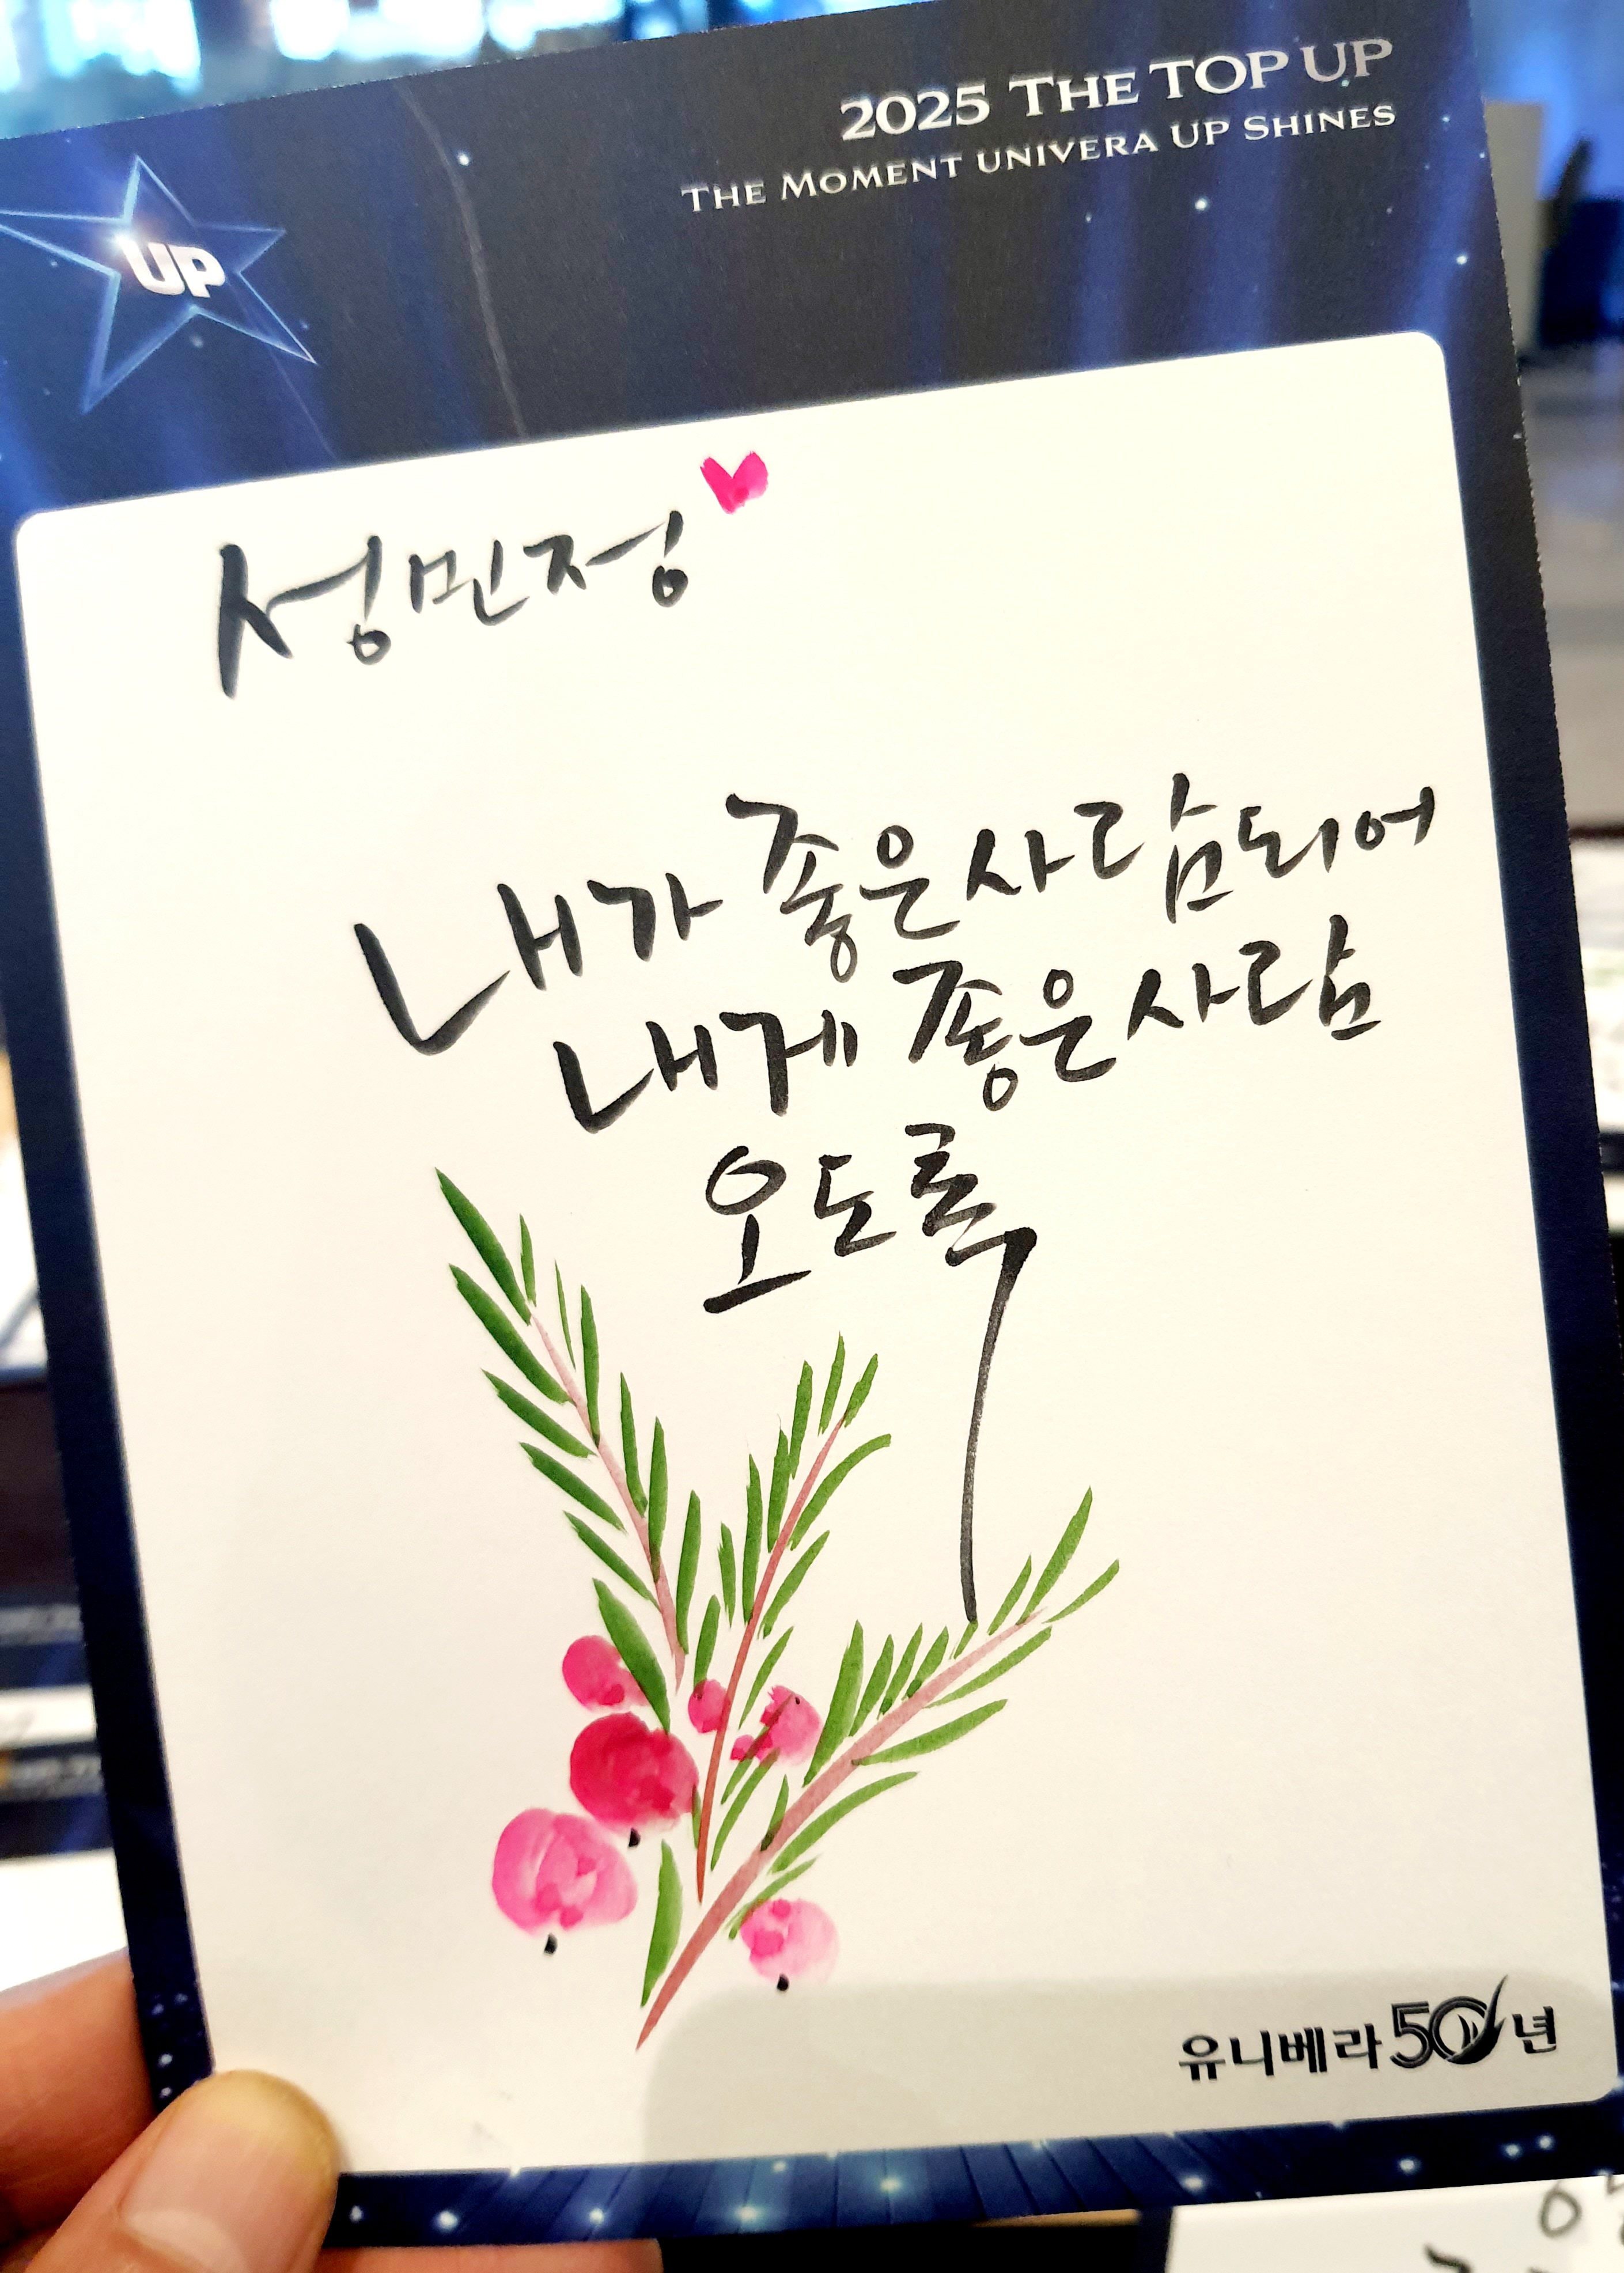 2025 THE TOP UP
THE MOMENT UNIVERA UP SHINES
UP
성민정
내가 좋은사람되어
내게 좋은사람
오도록
유니베라 50년